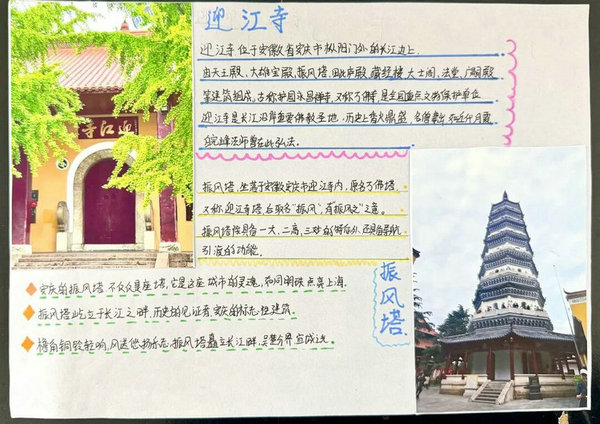 迎江寺
迎江寺
迎江寺位于安徽省安庆市枞阳门外的长江边上.
由天王殿、大雄宝殿、振风塔、毗卢殿 藏经楼 大士阁、法堂、广嗣殿
等建筑组成,古称护国永昌禅寺,又称万佛寺,是全国重点文物保护单位
迎江寺是长江沿岸重要佛教圣地,历史上香火鼎盛,名僧辈出 不近个月霞
皎峰法师曾在此弘法。
振风塔,坐落于安徽安庆市迎江寺内,原名万佛塔.
又称迎江寺塔,后取名"振风",有振风之意。
振风塔除具备一大、二高、三对的特征外 还具备导航
引渡的功能.
振风塔
安庆的振风塔 不仅仅是座塔,它是这座城市的灵魂,如同明珠点
振风塔屹立于长江之畔,历史的见证者,安庆的标志性建筑.
檐角铜铃轻响,风送悠扬 振风塔矗立长江畔,